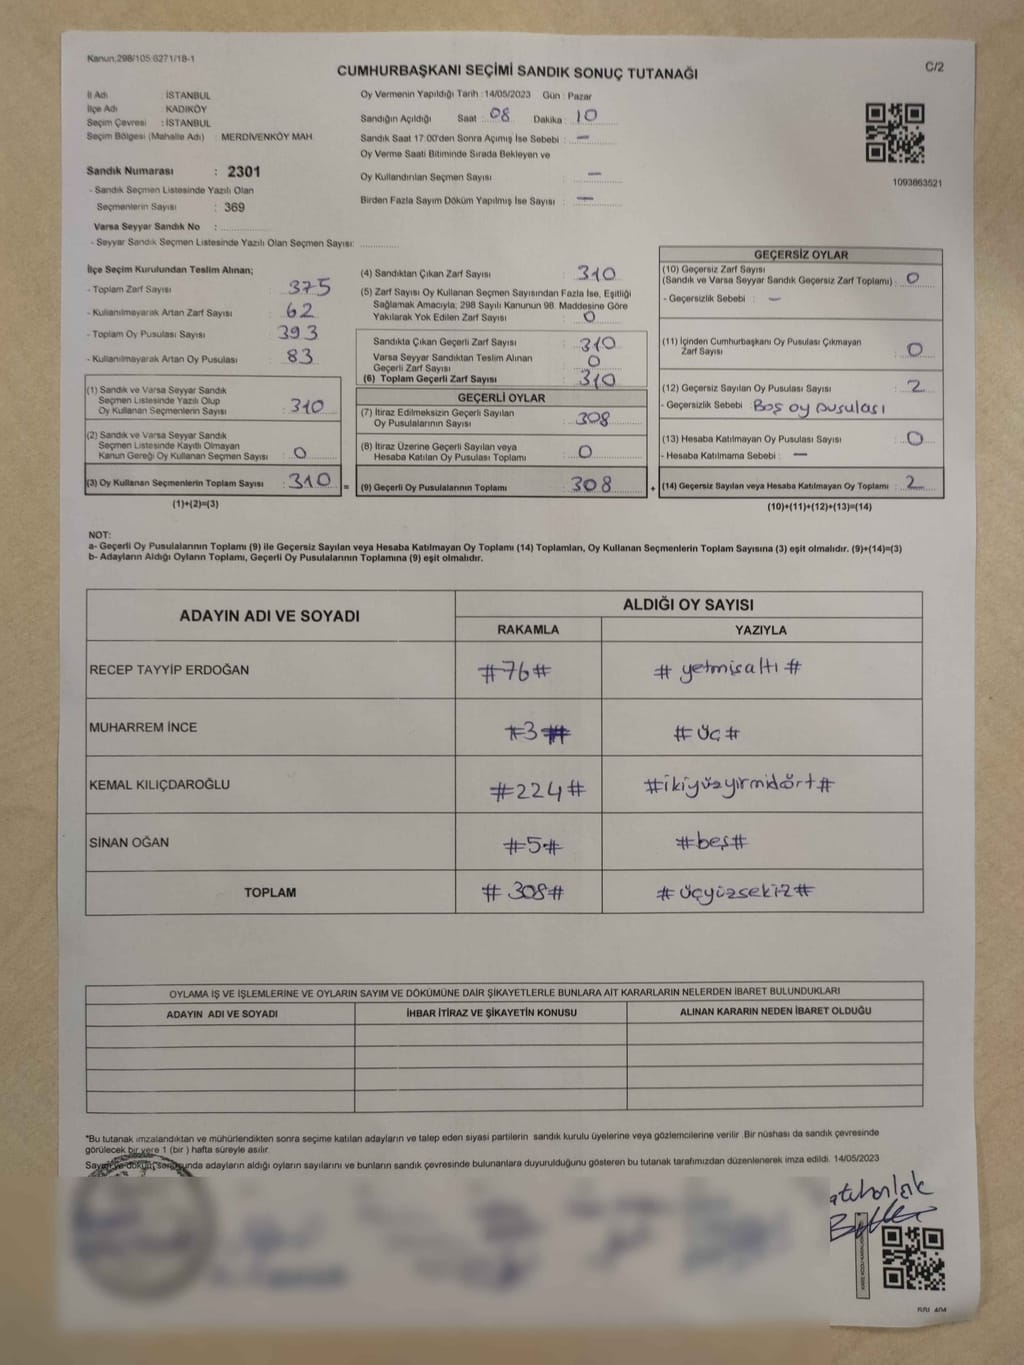 Kanun:298/105 6271/18-1
CUMHURBAŞKANI SEÇİMİ SANDIK SONUÇ TUTANAĞI
C/2
İl Adı : İSTANBUL
İlçe Adı : KADIKÖY
Seçim Çevresi : İSTANBUL
Seçim Bölgesi (Mahalle Adı) : MERDİVENKÖY MAH
Sandık Numarası : 2301
- Sandık Seçmen Listesinde Yazılı Olan
Seçmenlerin Sayısı : 369
Varsa Seyyar Sandık No :
- Seyyar Sandık Seçmen Listesinde Yazılı Olan Seçmen Sayısı:
Oy Vermenin Yapıldığı Tarih :14/05/2023 Gün : Pazar
Sandığın Açıldığı Saat : 08 Dakika : 10
Sandık Saat 17:00'den Sonra Açımış İse Sebebi : —
Oy Verme Saati Bitiminde Sırada Bekleyen ve
Oy Kullandırılan Seçmen Sayısı : —
Birden Fazla Sayım Döküm Yapılmış İse Sayısı : —
1093863521
İlçe Seçim Kurulundan Teslim Alınan;
- Toplam Zarf Sayısı : 375
- Kullanılmayarak Artan Zarf Sayısı : 62
- Toplam Oy Pusulası Sayısı : 393
- Kullanılmayarak Artan Oy Pusulası : 83
(1) Sandık ve Varsa Seyyar Sandık
Seçmen Listesinde Yazılı Olup
Oy Kullanan Seçmenlerin Sayısı : 310
(2) Sandık ve Varsa Seyyar Sandık
Seçmen Listesinde Kayıtlı Olmayan
Kanun Gereği Oy Kullanan Seçmen Sayısı : 0
(3) Oy Kullanan Seçmenlerin Toplam Sayısı : 310 =
(1)+(2)=(3)
(4) Sandıktan Çıkan Zarf Sayısı : 310
(5) Zarf Sayısı Oy Kullanan Seçmen Sayısından Fazla İse, Eşitliği
Sağlamak Amacıyla; 298 Sayılı Kanunun 98. Maddesine Göre
Yakılarak Yok Edilen Zarf Sayısı : 0
Sandıkta Çıkan Geçerli Zarf Sayısı : 310
Varsa Seyyar Sandıktan Teslim Alınan
Geçerli Zarf Sayısı : 0
(6) Toplam Geçerli Zarf Sayısı : 310
GEÇERLİ OYLAR
(7) İtiraz Edilmeksizin Geçerli Sayılan
Oy Pusulalarının Sayısı : 308
(8) İtiraz Üzerine Geçerli Sayılan veya
Hesaba Katılan Oy Pusulası Toplamı : 0
(9) Geçerli Oy Pusulalarının Toplamı : 308 +
GEÇERSİZ OYLAR
(10) Geçersiz Zarf Sayısı
(Sandık ve Varsa Seyyar Sandık Geçersiz Zarf Toplamı) : 0
- Geçersizlik Sebebi : —
(11) İçinden Cumhurbaşkanı Oy Pusulası Çıkmayan
Zarf Sayısı : 0
(12) Geçersiz Sayılan Oy Pusulası Sayısı : 2
- Geçersizlik Sebebi : Boş oy pusulası
(13) Hesaba Katılmayan Oy Pusulası Sayısı : 0
- Hesaba Katılmama Sebebi : —
(14) Geçersiz Sayılan veya Hesaba Katılmayan Oy Toplamı : 2
(10)+(11)+(12)+(13)=(14)
NOT:
a- Geçerli Oy Pusulalarının Toplamı (9) ile Geçersiz Sayılan veya Hesaba Katılmayan Oy Toplamı (14) Toplamları, Oy Kullanan Seçmenlerin Toplam Sayısına (3) eşit olmalıdır. (9)+(14)=(3)
b- Adayların Aldığı Oyların Toplamı, Geçerli Oy Pusulalarının Toplamına (9) eşit olmalıdır.
ADAYIN ADI VE SOYADI
ALDIĞI OY SAYISI
RAKAMLA YAZIYLA
RECEP TAYYİP ERDOĞAN #76# # yetmişaltı #
MUHARREM İNCE #3# # üç #
KEMAL KILIÇDAROĞLU #224# #ikiyüzyirmidört#
SİNAN OĞAN #5# #beş#
TOPLAM # 308# # üçyüzsekiz#
OYLAMA İŞ VE İŞLEMLERİNE VE OYLARIN SAYIM VE DÖKÜMÜNE DAİR ŞİKAYETLERLE BUNLARA AİT KARARLARIN NELERDEN İBARET BULUNDUKLARI
ADAYIN ADI VE SOYADI İHBAR İTİRAZ VE ŞİKAYETİN KONUSU ALINAN KARARIN NEDEN İBARET OLDUĞU
*Bu tutanak imzalandıktan ve mühürlendikten sonra seçime katılan adayların ve talep eden siyasi partilerin sandık kurulu üyelerine veya gözlemcilerine verilir. Bir nüshası da sandık çevresinde
görülecek bir yere 1 (bir ) hafta süreyle asılır.
Sayım ve döküm sonucunda adayların aldığı oyların sayılarını ve bunların sandık çevresinde bulunanlara duyurulduğunu gösteren bu tutanak tarafımızdan düzenlenerek imza edildi. 14/05/2023